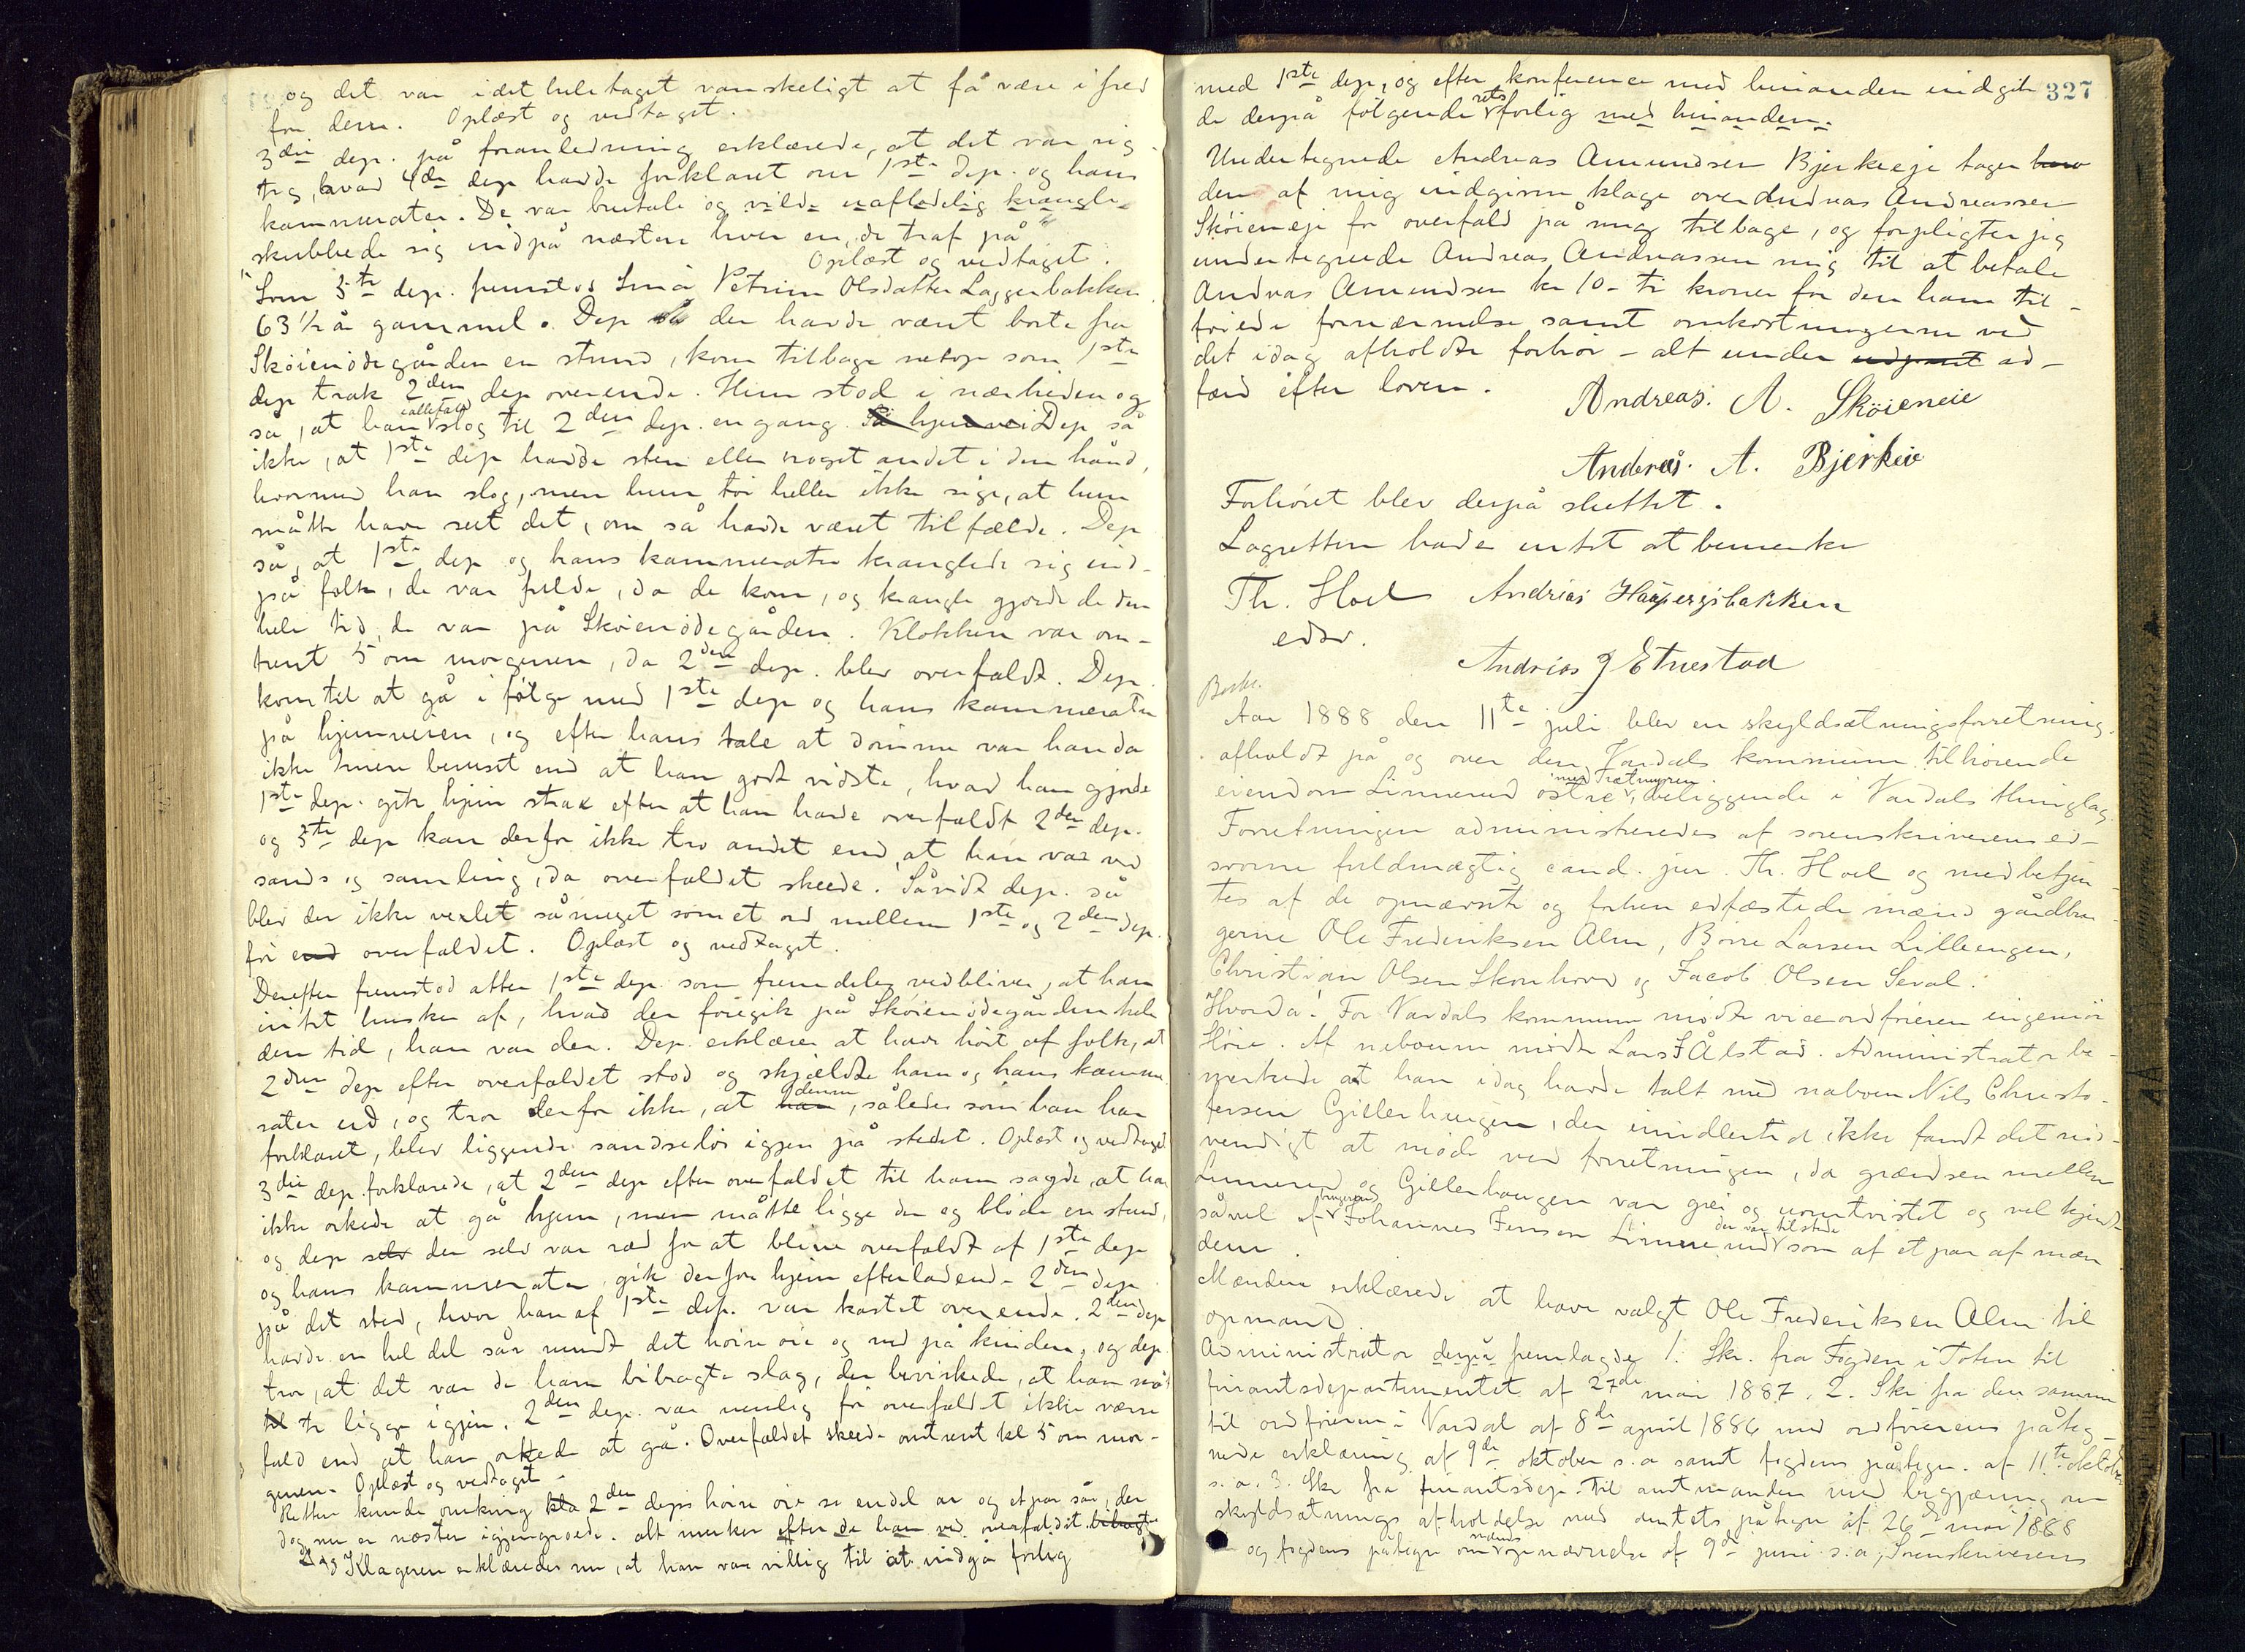 og det var i det hele taget vanskeligt at få være i fred
for dem. Oplæst og vedtaget.
3die dep. på foranledning erklærede, at det var rig-
tig, hvad 4de dep havde forklaret om 1ste dep. og hans
kammerater. De var brutale og vilde uafladelig krangle
skubbede sig indpå næsten hver en, de traf på
Oplæst og vedtaget.
Som 5te dep. fremstod Petrine Olsdatter Laggerbakken
63 1/2 år gammel. Dep der havde været borte fra
Skøienødegården en stund, kom tilbage netop som 1ste
dep trak 2den dep overende. Hun stod i nærheden og
så, at han iallefald slog til 2den dep. en gang. Så hjemvei Dep så
ikke, at 1ste dep havde sten eller noget andet i den hånd,
hvormed han slog, men hun tør heller ikke sige, at hun
måtte have seet det, om så havde været tilfælde. Dep
så, at 1ste dep og hans kammerater kranglede sig ind-
på folk, de var fulde, da de kom, og krangle gjorde de den
hele tid, de var på Skøienødegården. Klokken var om-
trent 5 om morgenen, da 2den dep. blev overfaldt. Dep.
kom til at gå i følge med 1ste dep og hans kammerater
på hjemveien, og efter hans tale at dømme var han da
ikke mere beruset end at han godt vidste, hvad han gjorde
1ste dep. gik hjem strax efter at han havde overfaldt 2den dep.
og 5te dep kan derfor ikke tro andet end at han var ved
sands og samling, da overfaldet skeede. Såvidt dep. så
blev der ikke vexlet såmeget som et ord mellem 1ste og 2den dep.
før end overfaldet. Oplæst og vedtaget.
Derefter fremstod atter 1ste dep. som fremdeles vedbliver, at han
intet husker af, hvad der foregik på Skøienødegården hele
den tid, han var der. Dep. erklærer at have hørt af folk, at
2den dep efter overfaldet stod og skjældte ham og hans kamme
rater ud, og tror derfor ikke, at han denne, således som han har
forklaret, blev liggende sandseløs igjen på stedet. Oplæst og vedtaget
3die dep. forklarede, at 2den dep efter overfaldet til ham sagde, at han
ikke orkede at gå hjem, men måtte ligge der og bløde en stund,
og dep selv der selv var ræd for at blive overfaldt af 1ste dep
og hans kammerater, gik derfor hjem efterladende 2den dep
på det sted, hvor han af 1ste dep. var kastet overende. 2den dep
havde en hel del sår rundt det høire øie og ned på kinden, og dep
tror, at det var de ham bibragte slag, der bevirkede, at han måt
til te ligge igjen. 2den dep. var nemlig før overfaldet ikke værre
fuld end at han orkede at gå. Overfaldet skeede omtrent kl 5 om mor-
genen. Oplæst og vedtaget
Retten kunde omkring kla 2den deps høire øie se endel ar og et par sår, der
dog nu er næsten igjengroede. alt merker efter de ham ved overfaldet bibragte
slag Klageren erklærede nu, at han var villig til at indgå forlig
327
med 1ste dep, og efter konference med hinanden indgik
de derpå følgende rets forlig med hinanden:
Undertegnede Andreas Amundsen Bjerkeeje tager herv
den af mig indgivne klage over Andreas Andreassen
Skøieneje for overfald på mig tilbage, og forpligter jeg
undertegnede Andreas Andreassen mig til at betale
Andreas Amundsen kr 10 - ti kroner for den ham til-
føiede fornærmelse samt omkostningerne ved
det idag afholdte forhør - alt under udpant ad-
færd efter loven.
Andreas. A. Skøieneie
Andreas. A. Bjerkeie
Forhøret blev derpå sluttet.
Lagretten havde intet at bemerke
Th. Hoel Andrias Haugersbakken
edsv.
Andrias J Etnestad
Beskr.
Aar 1888 den 11te juli blev en skyldsætningsforretning
afholdt på og over den Vardals kommune tilhørende
eiendom Linnerud østre med Trætmyren, beliggende i Vardals thinglag.
Forretningen administreredes af sorenskriverens ed-
svorne fuldmægtig cand. jur. Th. Hoel og medbetjen-
tes af de opnævnte og forhen edfæstede mænd gårdbru-
gerne Ole Frederiksen Alm, Børre Larsen Lilleengen,
Christian Olsen Skonhovd og Jacob Olsen Seval.
Hvorda: For Vardals kommune mødte viceordføreren ingeniør
Høie. Af naboerne mødte Lars J Ålstad. Administrator be-
merkede at han idag havde talt med naboen Nils Christo-
fersen Gillerhaugen, der imidlertid ikke fandt det nød-
vendigt at møde ved forretningen, da grændsen mellem
Linnerud og Gillerhaugen var grei og uomtvistet og vel kjendt
såvel af brugeren Johannes Jensen Linnerud der var tilstede som af et par af mæn
dene.
Mændene erklærede at have valgt Ole Frederiksen Alm til
opmand.
Administrator derpå fremlagde 1. Skr. fra Fogden i Toten til
finantsdepartementet af 27de mai 1887. 2. Skr fra den samme
til ordføreren i Vardal af 8de april 1886 med ordførerens påteg-
nede erklæring af 9de oktober s.a samt fogdens påtegn. af 11te oktober
s.a. 3. Skr fra finantsdep. til amtmanden med begjæring om
skyldsætnings afholdelse med amtets påtegn af 26de mai 1888
og fogdens påtegn om mænds opnævnelse af 9de juni s.a, Sorenskriverens